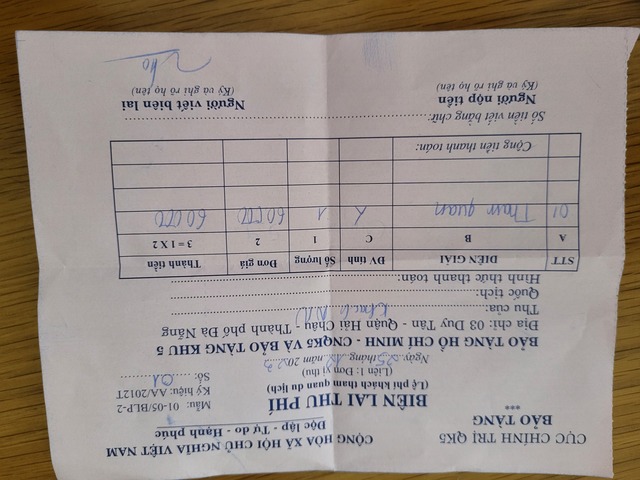 CỤC CHÍNH TRỊ QK5
BẢO TÀNG
***
CỘNG HÒA XÃ HỘI CHỦ NGHĨA VIỆT NAM
Độc lập - Tự do - Hạnh phúc
BIÊN LAI THU PHÍ
(Lệ phí khách tham quan du lịch)
(Liên 1: Đơn vị thu)
Ngày 25 tháng 12 năm 2023
Mẫu: 01-05/BLP-2
Ký hiệu: AA/2012T
Số: 01
BẢO TÀNG HỒ CHÍ MINH - CNQK5 VÀ BẢO TÀNG KHU 5
Địa chỉ: 03 Duy Tân - Quận Hải Châu - Thành phố Đà Nẵng
Thu của: Khách NN
Quốc tịch:
Hình thức thanh toán:
STT DIỄN GIẢI ĐV tính Số lượng Đơn giá Thành tiền
A B C 1 2 3 = 1 X 2
01 Tham quan 1 60000 60000
Cộng tiền thanh toán:
Số tiền viết bằng chữ:
Người nộp tiền Người viết biên lai
(Ký và ghi rõ họ tên) (Ký và ghi rõ họ tên)